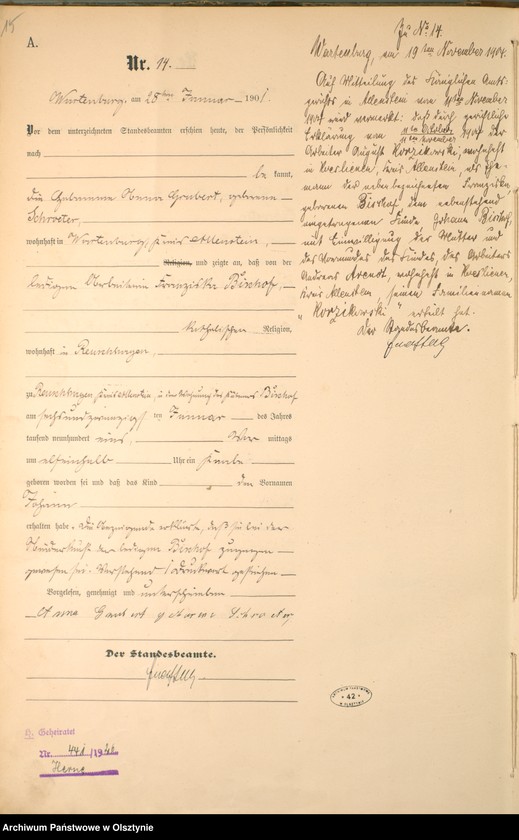 15
A.
Nr. 14.
Wartenburg, am 28 ten Januar 1901.
Vor dem unterzeichneten Standesbeamten erschien heute, der Persönlichkeit
nach
be kannt,
die Hebamme Anna geborene
Schröter,
wohnhaft in Wartenburg, Kreis Allenstein,
Religion, und zeigte an, daß von der
ledigen Arbeiterin Franziska Bischof,
katholischen Religion,
wohnhaft in
zu Kreis Allenstein, in der Wohnung des Bischof
am sechsundzwanzigsten Januar des Jahres
tausend neunhundert eins, Vor mittags
um elfeinhalb Uhr ein Knabe
geboren worden sei und daß das Kind den Vornamen
Johann
erhalten habe. Die Anzeigende erklärte, daß sie bei der
Niederkunft der ledigen Bischof zugegen
gewesen sei. Vorstehend 1 Druckwort gestrichen
Vorgelesen, genehmigt und unterschrieben
Anna geborene Schroeter
Der Standesbeamte.
Zu No 14.
Wartenburg, am 19 ten November 1904.
Auf Mitteilung des Königlichen Amts-
gerichts in Allenstein vom November
wird vermerkt: daß durch gerichtliche
Erklärung vom der
Arbeiter August Korzikowski, wohnhaft
in Kreis Allenstein, als Ehe-
mann der neben bezeichneten Franziska,
geborenen Bischof dem nebenstehend
eingetragenen Kinde Johann Bischof,
mit Einwilligung der Mutter und
des Vormundes des Kindes, des Arbeiters
Andreas Arendt, wohnhaft in
Kreis Allenstein, seinen Familiennamen
"Korzikowski" erteilt hat.
Der Standesbeamte.
ARCHIWUM PAŃSTWOWE
42
W OLSZTYNIE
Geheiratet
Nr. 441/1940
Herne
Archiwum Państwowe w Olsztynie